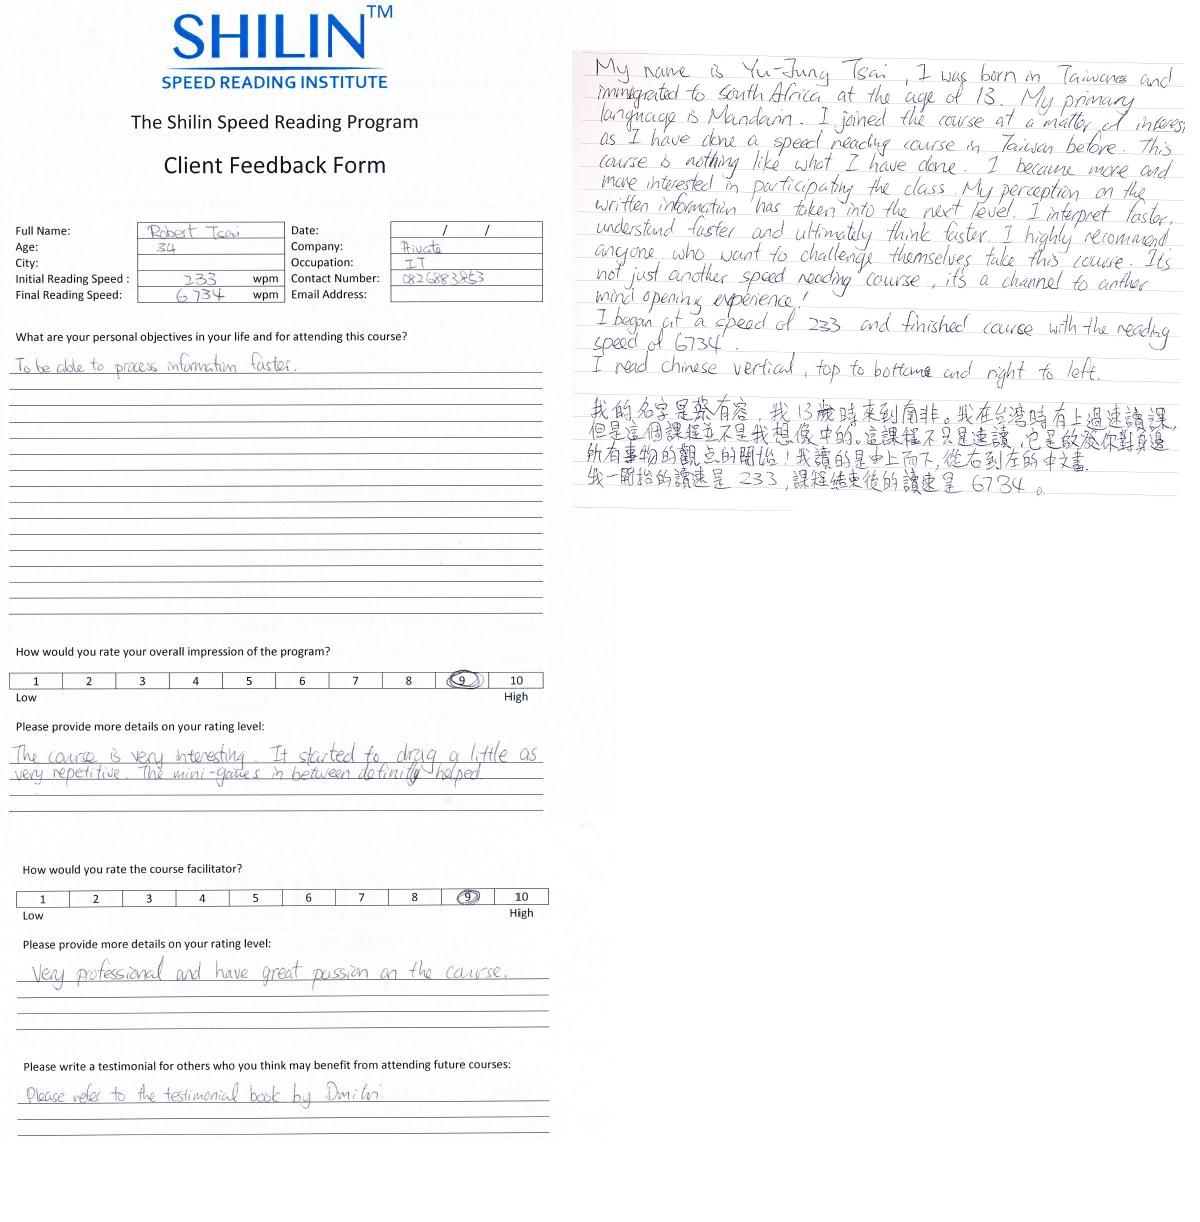 SHILIN™
SPEED READING INSTITUTE
The Shilin Speed Reading Program
Client Feedback Form
Full Name: Robert Tsai Date: / /
Age: 34 Company: Private
City: Occupation: IT
Initial Reading Speed : 233 wpm Contact Number: 0826883853
Final Reading Speed: 6734 wpm Email Address:
What are your personal objectives in your life and for attending this course?
To be able to process information faster.
How would you rate your overall impression of the program?
1 2 3 4 5 6 7 8 9 10
Low High
Please provide more details on your rating level:
The course is very interesting. It started to drag a little as
very repetitive. The mini-games in between definitly helped.
How would you rate the course facilitator?
1 2 3 4 5 6 7 8 9 10
Low High
Please provide more details on your rating level:
Very professional and have great passion on the course.
Please write a testimonial for others who you think may benefit from attending future courses:
Please refer to the testimonial book by Dmitri
My name is Yu-Jung Tsai, I was born in Taiwan and
immigrated to South Africa at the age of 13. My primary
language is Mandarin. I joined the course at a matter of interest
as I have done a speed reading course in Taiwan before. This
course is nothing like what I have done. I became more and
more interested in participating the class. My perception on the
written information has taken into the next level. I interpret faster,
understand faster and ultimately think faster. I highly recommend
anyone who want to challenge themselves take this course. It's
not just another speed reading course, it's a channel to anther
mind opening experience!
I began at a speed of 233 and finished course with the reading
speed of 6734.
I read chinese vertical, top to bottom and right to left.
我的名字是蔡有容，我13歲時來到南非。我在台湾時有上過速讀課，
但是這個課程並不是我想像中的。這課程不只是速讀，它是啟發你對身邊
所有事物的觀点的開始！我讀的是由上而下，從右到左的中文書.
我一開始的讀速是 233，課程結束後的讀速是 6734。